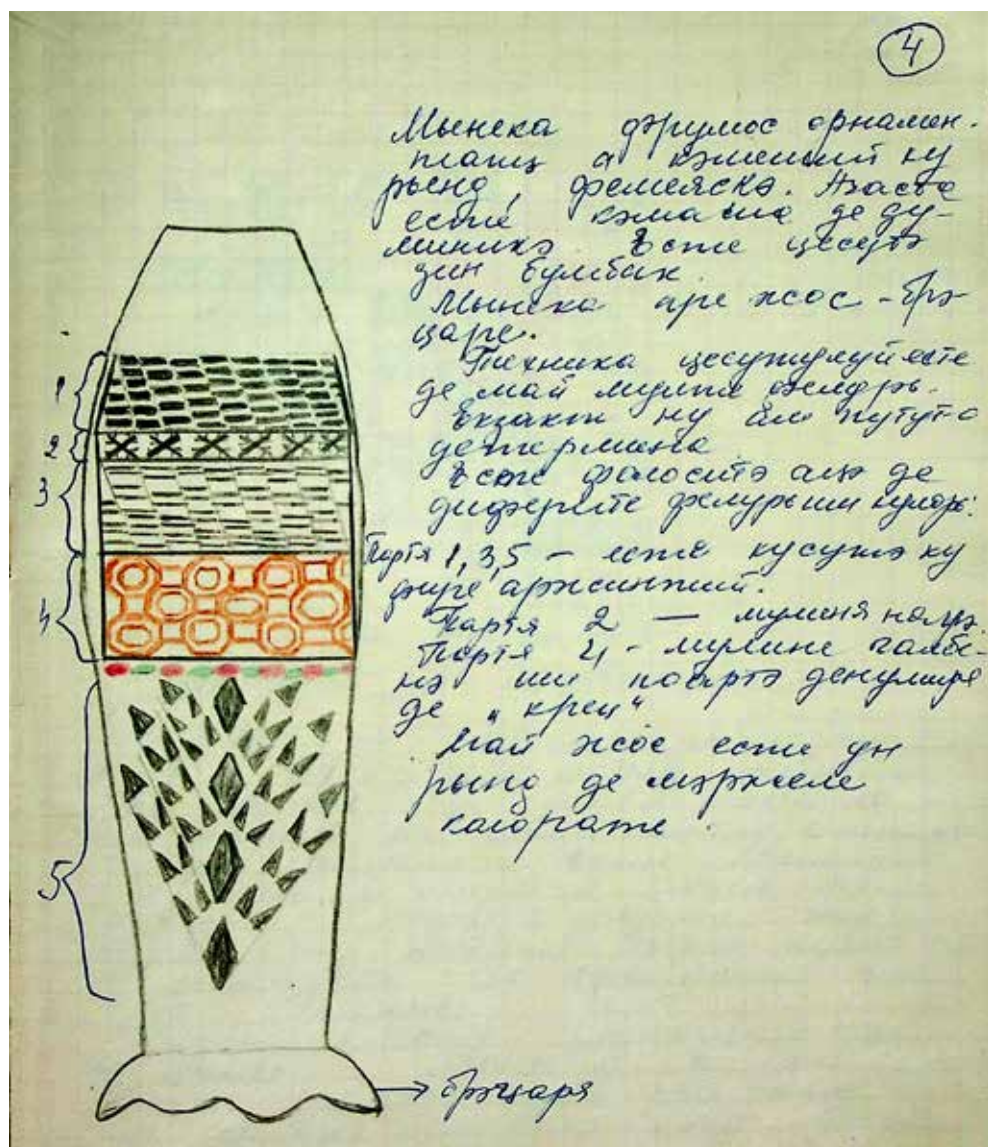 4
Мынека фрумос орнамен-
татэ а кэмеший ку
рынд, фемеяскэ. Ачаста
есте кэмаша де ду-
миникэ. Есте цесутэ
дин бумбак.
Мынека аре жос - брэ-
царе.
Техника цесутулуй есте
де май мулте фелурь.
Екзакт ну ам путут-о
детермина
Есте фолоситэ ацэ де
диферите фелурь ши кулорь:
Партя 1, 3, 5 — есте кусутэ ку
фире аржинтий.
Партя 2 — мулиня нягрэ.
Партя 4 - мулине галбе-
нэ ши поартэ денумиря
де „крец“
Май жос есте ун
рынд де мэржеле
колорате.
1
2
3
4
5
брэцаря